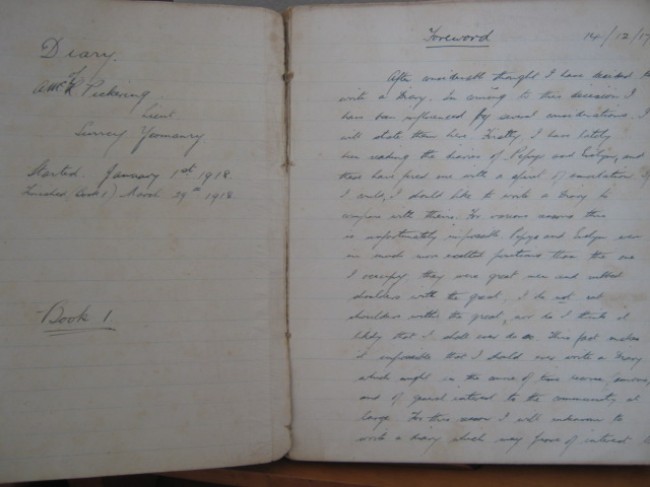 Diary.
of
Pickering
Lieut
Surrey Yeomanry
Started January 1st 1918.
Finished (Book 1) March 29th 1918.
Book 1.
Foreword
14/12/17
After considerable thought I have decided to
write a Diary. In coming to this decision I
have been influenced by several considerations. I
will state them here. Firstly, I have lately
been reading the diaries of Pepys and Evelyn, and
these have fired me with a spirit of emulation. If
I could, I should like to write a Diary to
compare with theirs. For various reasons this
is unfortunately impossible. Pepys and Evelyn were
in much more exalted positions than the one
I occupy, they were great men and rubbed
shoulders with the great. I do not rub
shoulders with the great, nor do I think it
likely that I shall ever do so. This fact makes
it impossible that I should ever write a Diary
which might in the course of time become famous,
and of great interest to the community at
large. For this reason I will endeavour to
write a diary which may prove of interest to